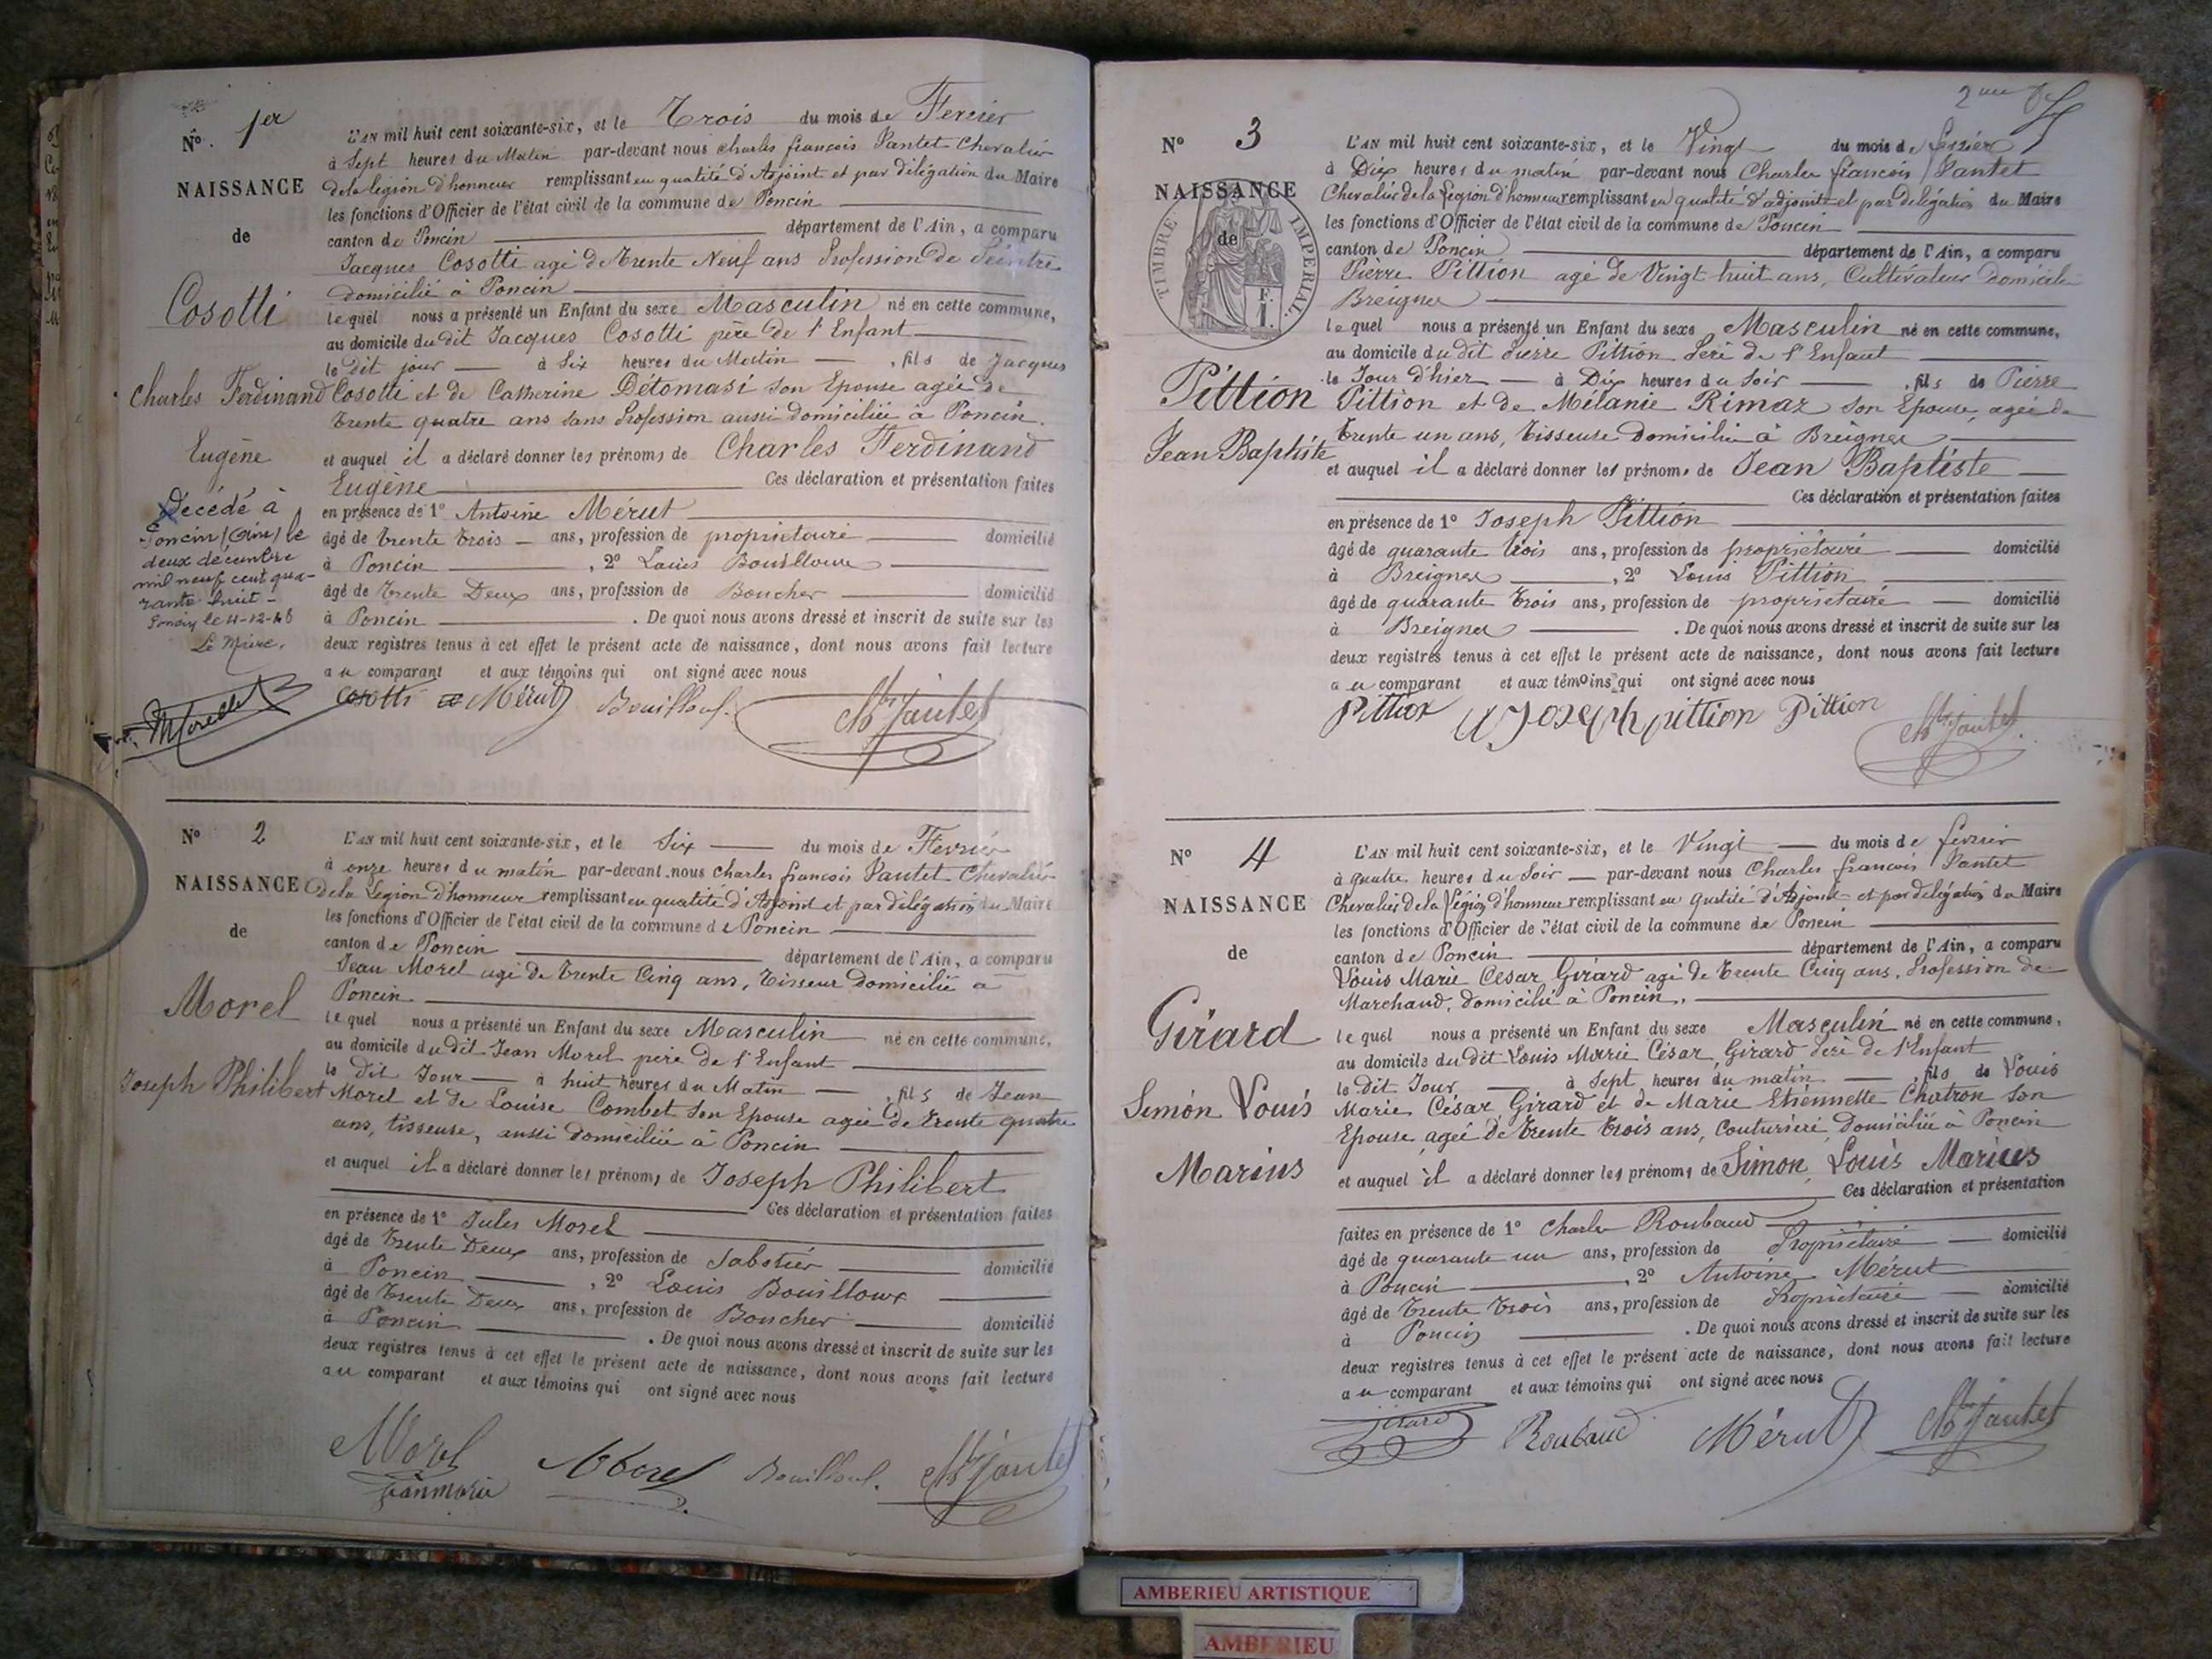 Nº. 1er
NAISSANCE
de
Cosotti
Charles Ferdinand
Eugène
Décédé à
Poncin (Ain) le
deux décembre
mil neuf cent qua-
rante huit -
Poncin le 4-12-48
Le Maire,
L'AN mil huit cent soixante-six, et le Trois du mois de Fevrier
à Sept heures du Matin par-devant nous Charles françois Pantet Chevalier
de la legion d'honneur remplissant en qualité d'Adjoint et par délégation du Maire
les fonctions d'Officier de l'état civil de la commune de Poncin
canton de Poncin département de l'Ain, a comparu
Jacques Cosotti agé de Trente Neuf ans Profession de Peintre
domicilié à Poncin
lequel nous a présenté un Enfant du sexe Masculin né en cette commune,
au domicile du dit Jacques Cosotti père de l'Enfant
le dit jour à Six heures du Matin, fils de Jacques
Cosotti et de Catherine Détomasi son Epouse agée de
trente quatre ans sans Profession aussi domiciliée à Poncin.
et auquel il a déclaré donner les prénoms de Charles Ferdinand
Eugène Ces déclaration et présentation faites
en présence de 1º Antoine Mérut
âgé de trente trois ans, profession de propriétaire domicilié
à Poncin, 2º Louis Bouilloux
âgé de Trente Deux ans, profession de Boucher domicilié
à Poncin. De quoi nous avons dressé et inscrit de suite sur les
deux registres tenus à cet effet le présent acte de naissance, dont nous avons fait lecture
au comparant et aux témoins qui ont signé avec nous
Cosotti Mérut Bouilloux Ch Pantet
Nº 2
NAISSANCE
de
Morel
Joseph Philibert
L'AN mil huit cent soixante-six, et le Six du mois de Fevrier
à onze heures du matin par-devant nous Charles françois Pantet Chevalier
de la Légion d'honneur remplissant en qualité d'Adjoint et par délégation du Maire
les fonctions d'Officier de l'état civil de la commune de Poncin
canton de Poncin département de l'Ain, a comparu
Jean Morel agé de trente Cinq ans, Tisseur domicilié à
Poncin
lequel nous a présenté un Enfant du sexe Masculin né en cette commune,
au domicile du dit Jean Morel père de l'Enfant
le dit Jour à huit heures du Matin, fils de Jean
Morel et de Louise Combet son Epouse agée de trente quatre
ans, tisseuse, aussi domiciliée à Poncin
et auquel il a déclaré donner les prénoms de Joseph Philibert
Ces déclaration et présentation faites
en présence de 1º Jules Morel
âgé de trente Deux ans, profession de Sabotier domicilié
à Poncin, 2º Louis Bouilloux
âgé de trente Deux ans, profession de Boucher domicilié
à Poncin. De quoi nous avons dressé et inscrit de suite sur les
deux registres tenus à cet effet le présent acte de naissance, dont nous avons fait lecture
au comparant et aux témoins qui ont signé avec nous
Morel Morel Bouilloux. Ch Pantet
jeanmarie
2me
Nº 3
NAISSANCE
de
TIMBRE IMPERIAL.
Pittion
Jean Baptiste
L'AN mil huit cent soixante-six, et le Vingt du mois de fevrier
à Dix heures du matin par-devant nous Charles françois Pantet
Chevalier de la Legion d'honneur remplissant en qualité d'adjoint et par délégation du Maire
les fonctions d'Officier de l'état civil de la commune de Poncin
canton de Poncin département de l'Ain, a comparu
Pierre Pittion agé de Vingt huit ans, Cultivateur domicilié
Breignes
lequel nous a présenté un Enfant du sexe Masculin né en cette commune,
au domicile du dit Pierre Pittion Père de l'Enfant
le Jour d'hier à Dix heures du Soir, fils de Pierre
Pittion et de Mélanie Rimaz son Epouse, agée de
trente un ans, tisseuse domiciliée à Breignes
et auquel il a déclaré donner les prénoms de Jean Baptiste
Ces déclaration et présentation faites
en présence de 1º Joseph Pittion
âgé de quarante trois ans, profession de propriétaire domicilié
à Breignes, 2º Louis Pittion
âgé de quarante trois ans, profession de propriétaire domicilié
à Breignes. De quoi nous avons dressé et inscrit de suite sur les
deux registres tenus à cet effet le présent acte de naissance, dont nous avons fait lecture
au comparant et aux témoins qui ont signé avec nous
Pittion Joseph pittion Pittion Ch Pantet
Nº 4
NAISSANCE
de
Girard
Simon Louis
Marius
L'AN mil huit cent soixante-six, et le Vingt du mois de fevrier
à quatre heures du Soir par-devant nous Charles françois Pantet
Chevalier de la Légion d'honneur remplissant en qualité d'Adjoint et par délégation du Maire
les fonctions d'Officier de l'état civil de la commune de Poncin
canton de Poncin département de l'Ain, a comparu
Louis Marie César Girard agé de trente Cinq ans, Profession de
Marchand, domicilié à Poncin,
lequel nous a présenté un Enfant du sexe Masculin né en cette commune,
au domicile du dit Louis Marie César Girard Père de l'Enfant
le dit Jour à Sept heures du matin, fils de Louis
Marie César Girard et de Marie Etiennette Chatron son
Epouse, agée de trente trois ans, Couturière, domiciliée à Poncin
et auquel il a déclaré donner les prénoms de Simon Louis Marius
Ces déclaration et présentation
faites en présence de 1º Charles Roubaud
âgé de quarante un ans, profession de Propriétaire domicilié
à Poncin, 2º Antoine Mérut
âgé de trente trois ans, profession de Propriétaire domicilié
à Poncin. De quoi nous avons dressé et inscrit de suite sur les
deux registres tenus à cet effet le présent acte de naissance, dont nous avons fait lecture
au comparant et aux témoins qui ont signé avec nous
Girard Roubaud Mérut Ch Pantet
AMBERIEU ARTISTIQUE
AMBERIEU